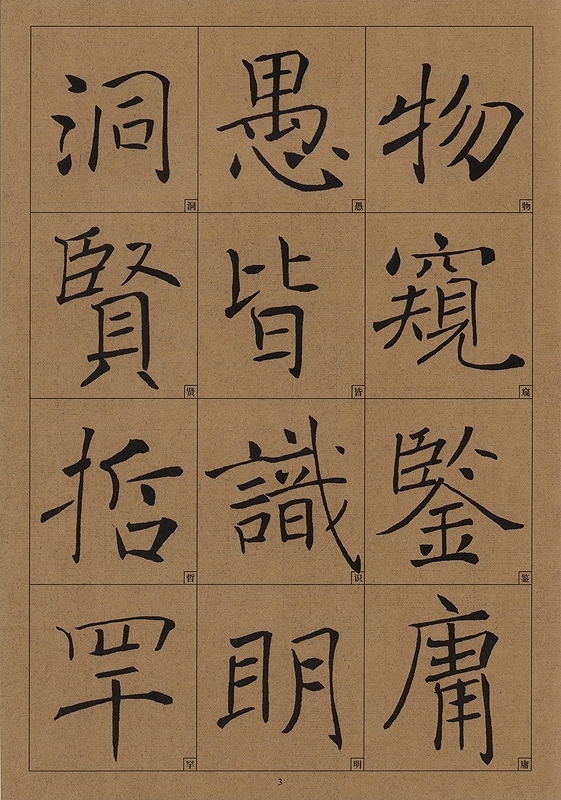 物
物
窺
窥
鑒
鉴
庸
庸
愚
愚
皆
皆
識
识
明
明
洞
洞
賢
贤
哲
哲
罕
罕
3